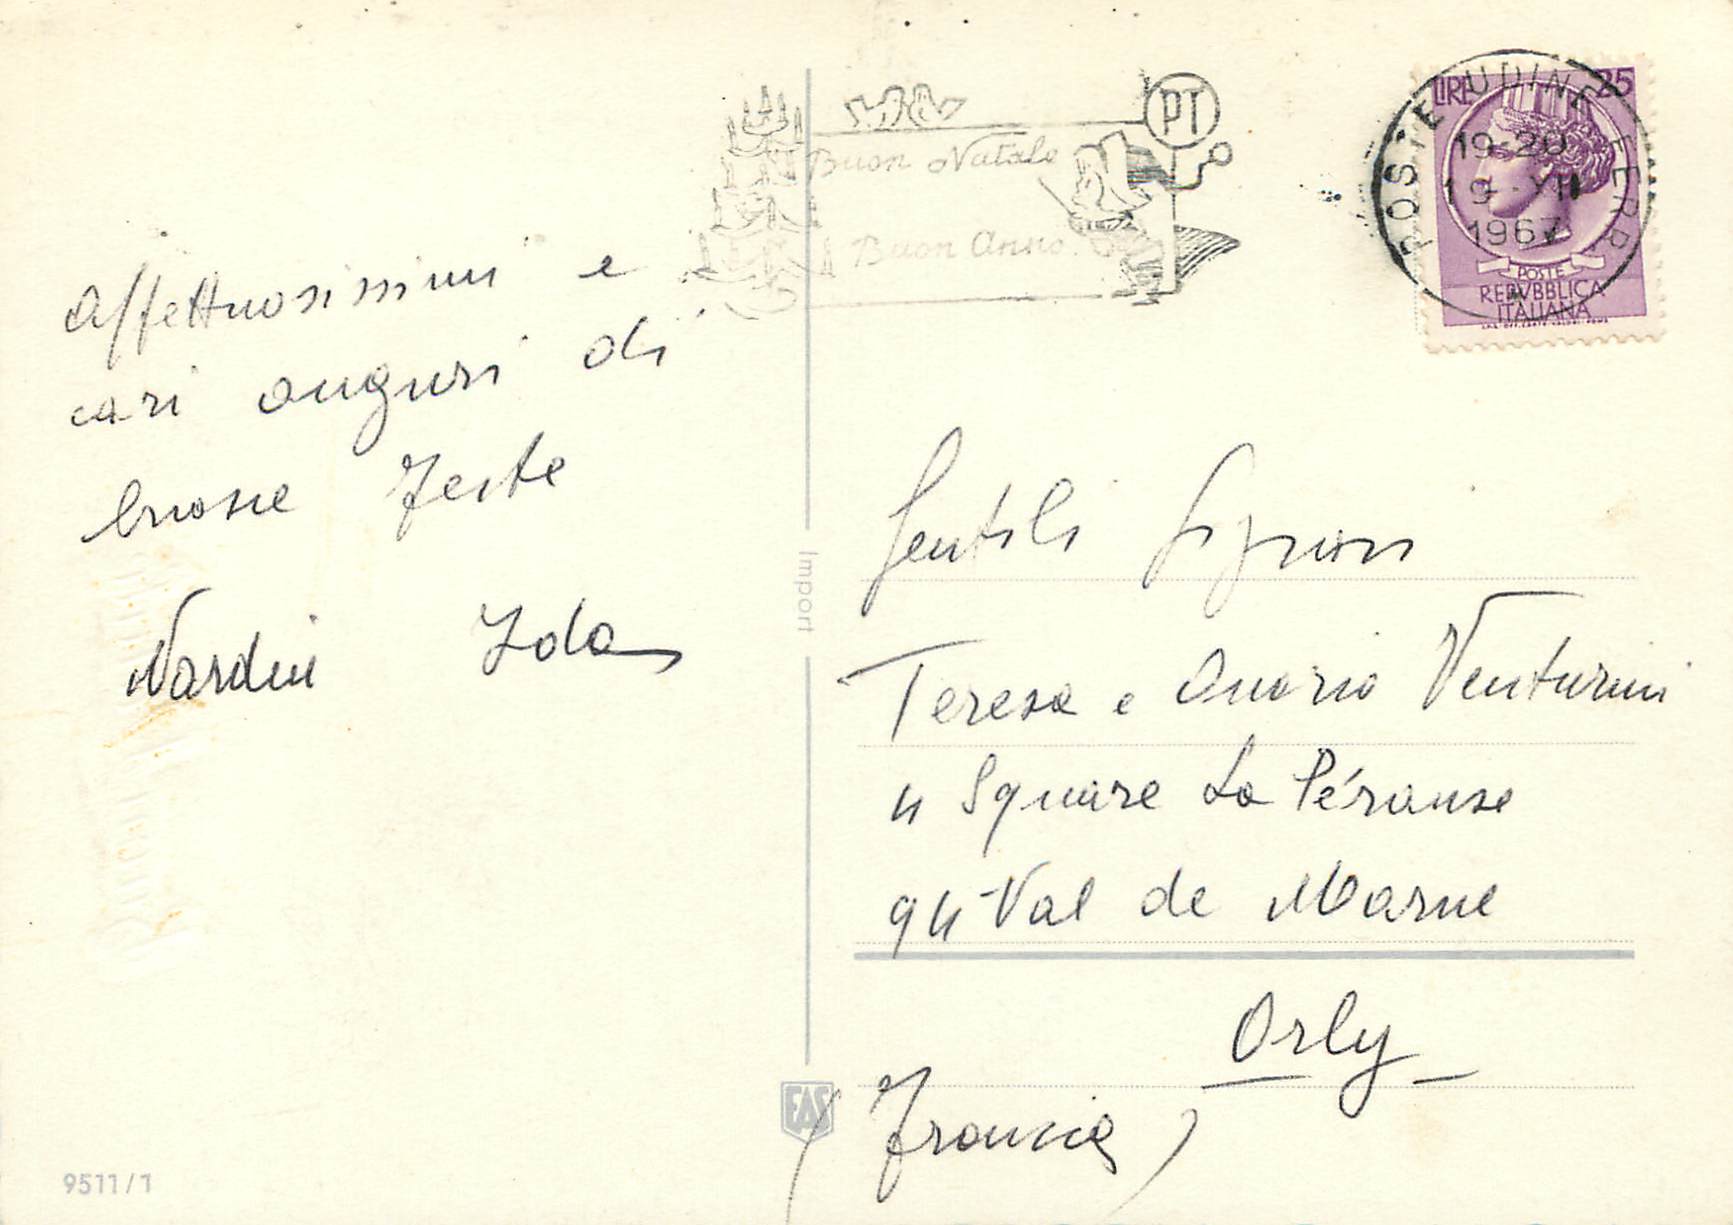 Affettuosissimi e
cari auguri di
buone Feste
Nardini Ida
Buon Natale
Buon Anno
PT
POSTE UDINE FERR
19-20
19 XII
1967
LIRE 25
POSTE
REPVBBLICA
ITALIANA
Import
Gentili Signori
Teresa e Onorio Venturini
4 Square La Pérouse
94-Val de Marne
Orly
(Francia)
EAS
9511/1